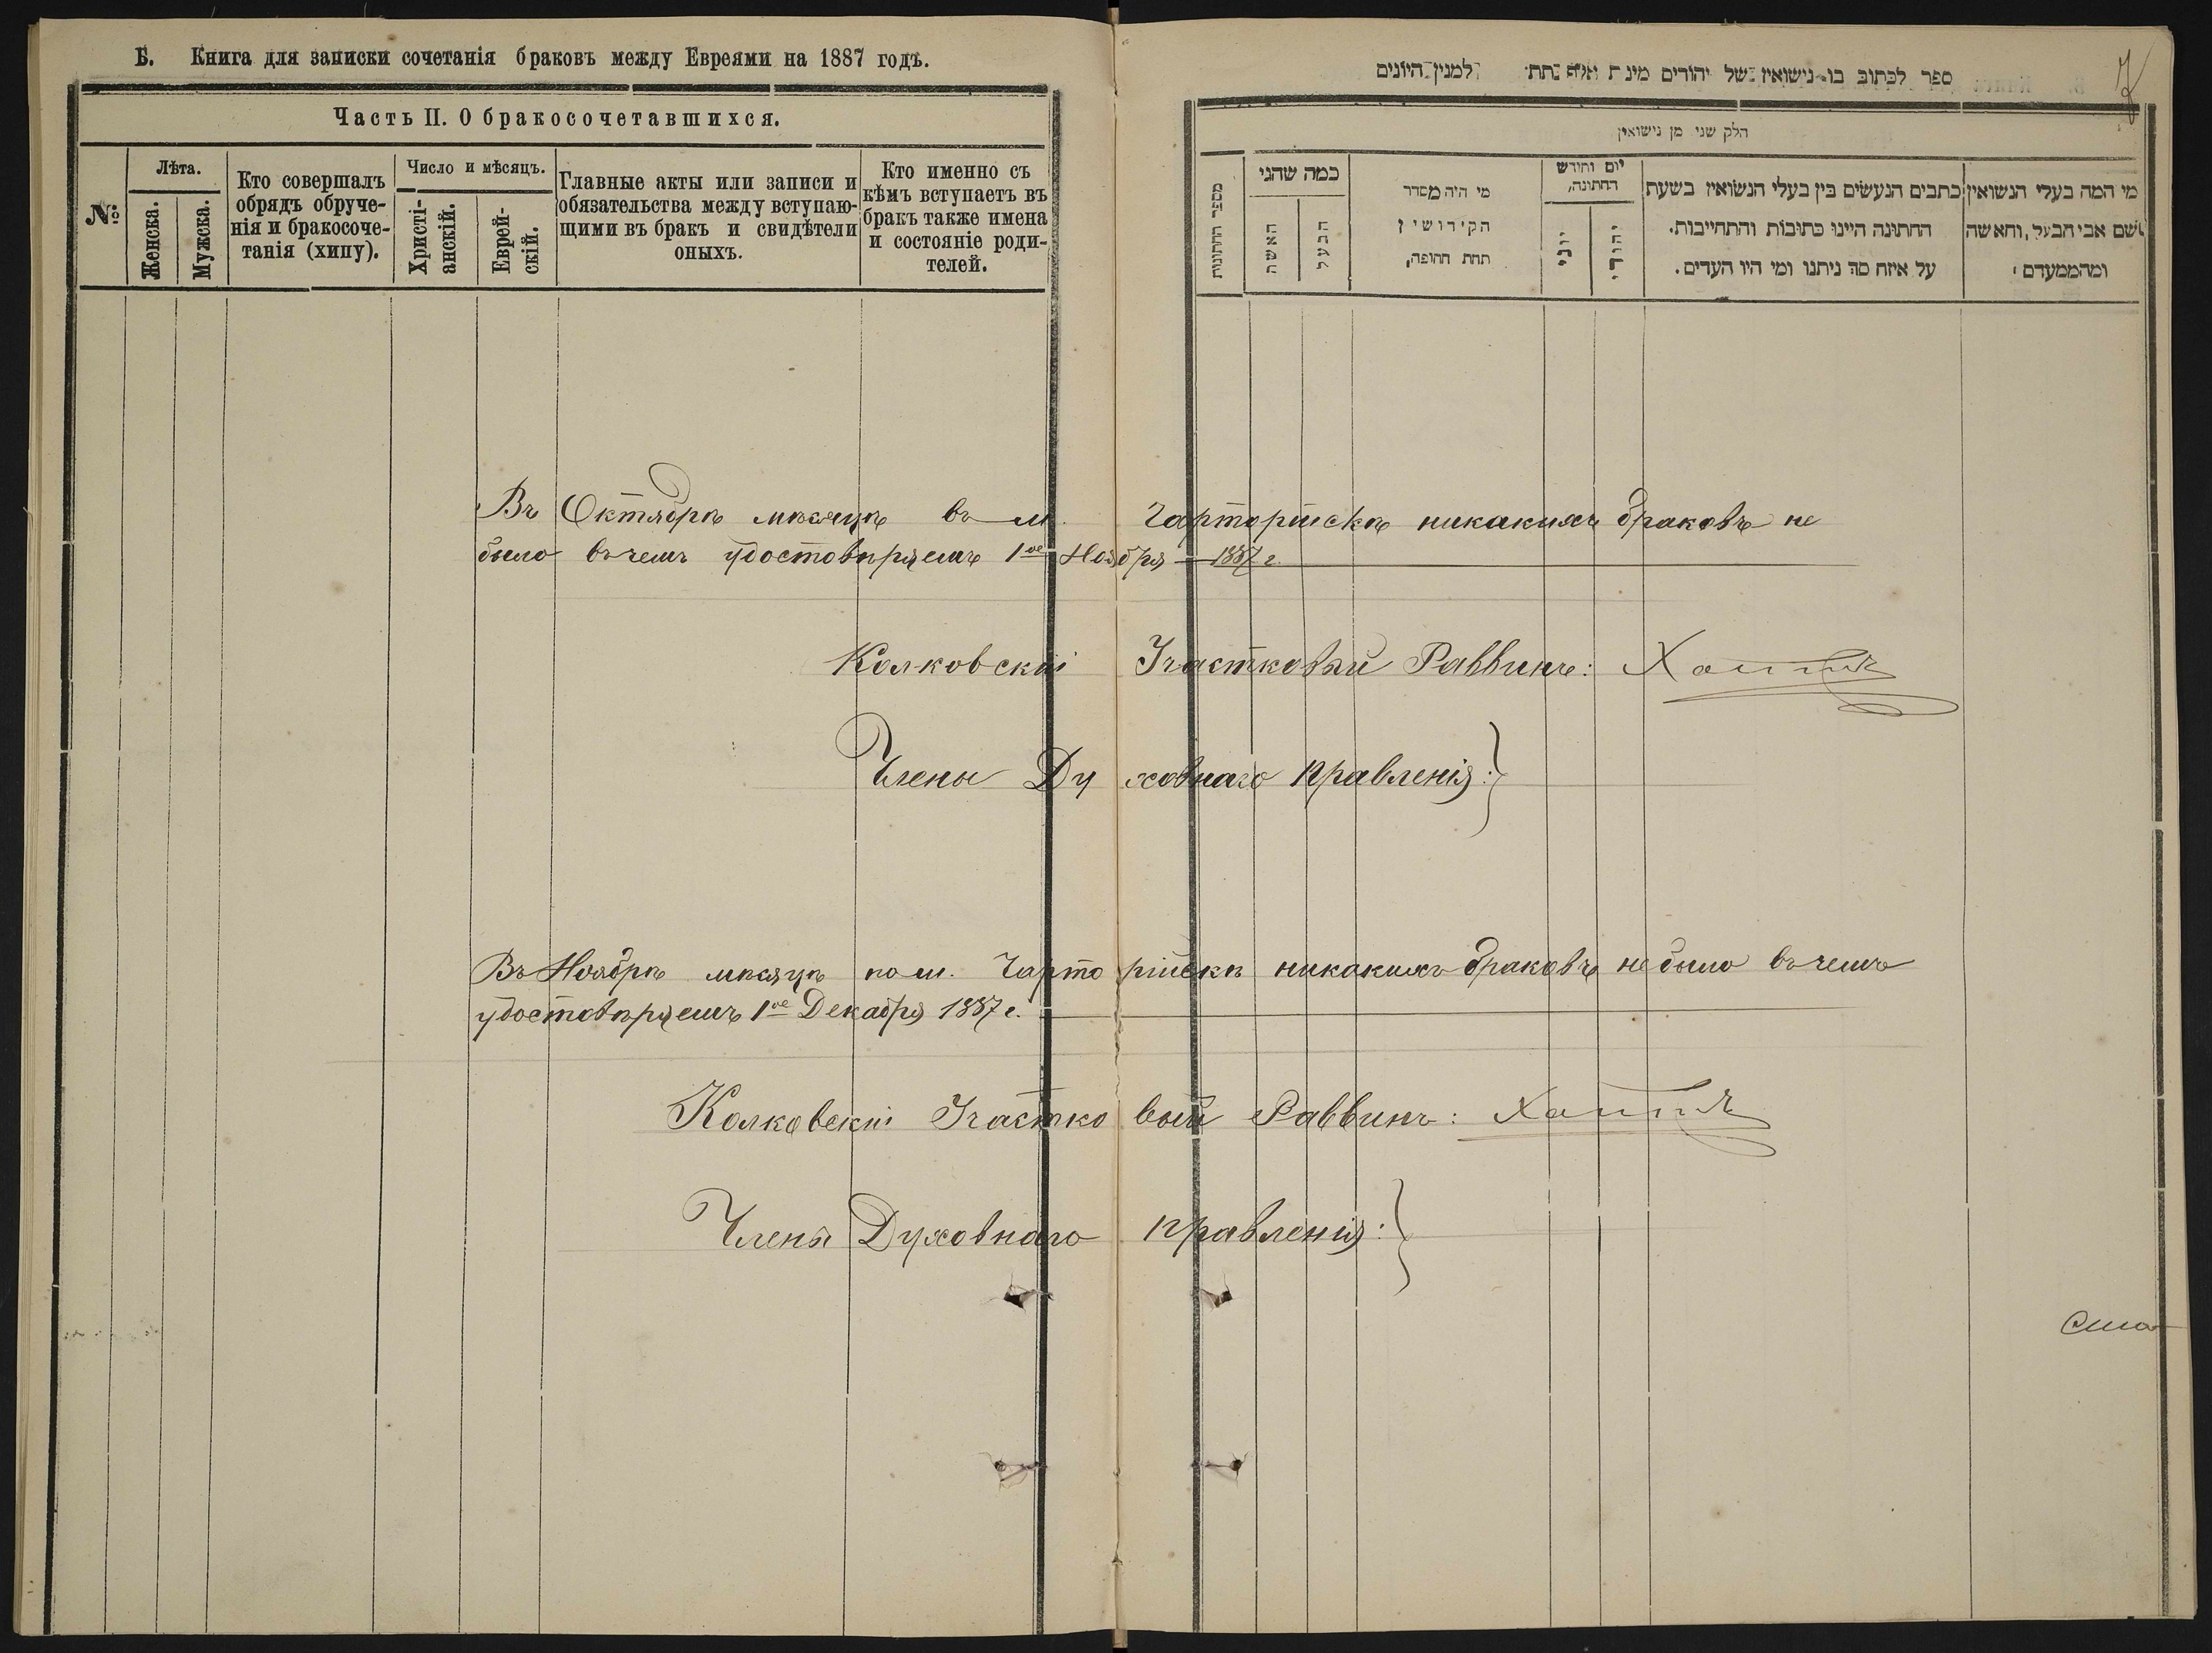 Б. Книга для записки сочетанія браковъ между Евреями на 1887 годъ.
Часть II. О бракосочетавшихся.
№
Лѣта.
Женска.
Мужска.
Кто совершалъ
обрядъ обруче-
нія и бракосоче-
танія (хипу).
Число и мѣсяцъ.
Христі-
анскій.
Еврей-
скій.
Главные акты или записи и
обязательства между вступаю-
щими въ бракъ и свидѣтели
оныхъ.
Кто именно съ
кѣмъ вступаетъ въ
бракъ также имена
и состояніе роди-
телей.
ספר לכתוב בו נישואין של יהודים
למנין היונים
7
חלק שני מן נישואין
מספר החתונות
כמה שהגי
האשה
הבעל
מי היה מסדר
הקידושין
תחת החופה,
יום וחודש
החתונה,
יוני
יהודי
כתבים הנעשים בין בעלי הנשואין בשעת
החתונה היינו כתובות והתחייבות.
על איזה סך ניתנו ומי היו העדים.
מי המה בעלי הנשואין
ושם אבי הבעל, והאשה
ומהמעמדם
Въ Октябрѣ мѣсяцѣ въ м. Чарторійскѣ никакихъ браковъ не
было въ чемъ удостовѣряемъ 1ое Ноября 1887 г.
Колковскій Участковый Раввинъ:
Члены Духовнаго Правленія:
Въ Ноябрѣ мѣсяцѣ по м. Чарторійскѣ никакихъ браковъ не было въ чемъ
удостовѣряемъ 1ое Декабря 1887 г.
Колковскій Участковый Раввинъ:
Члены Духовнаго Правленія: